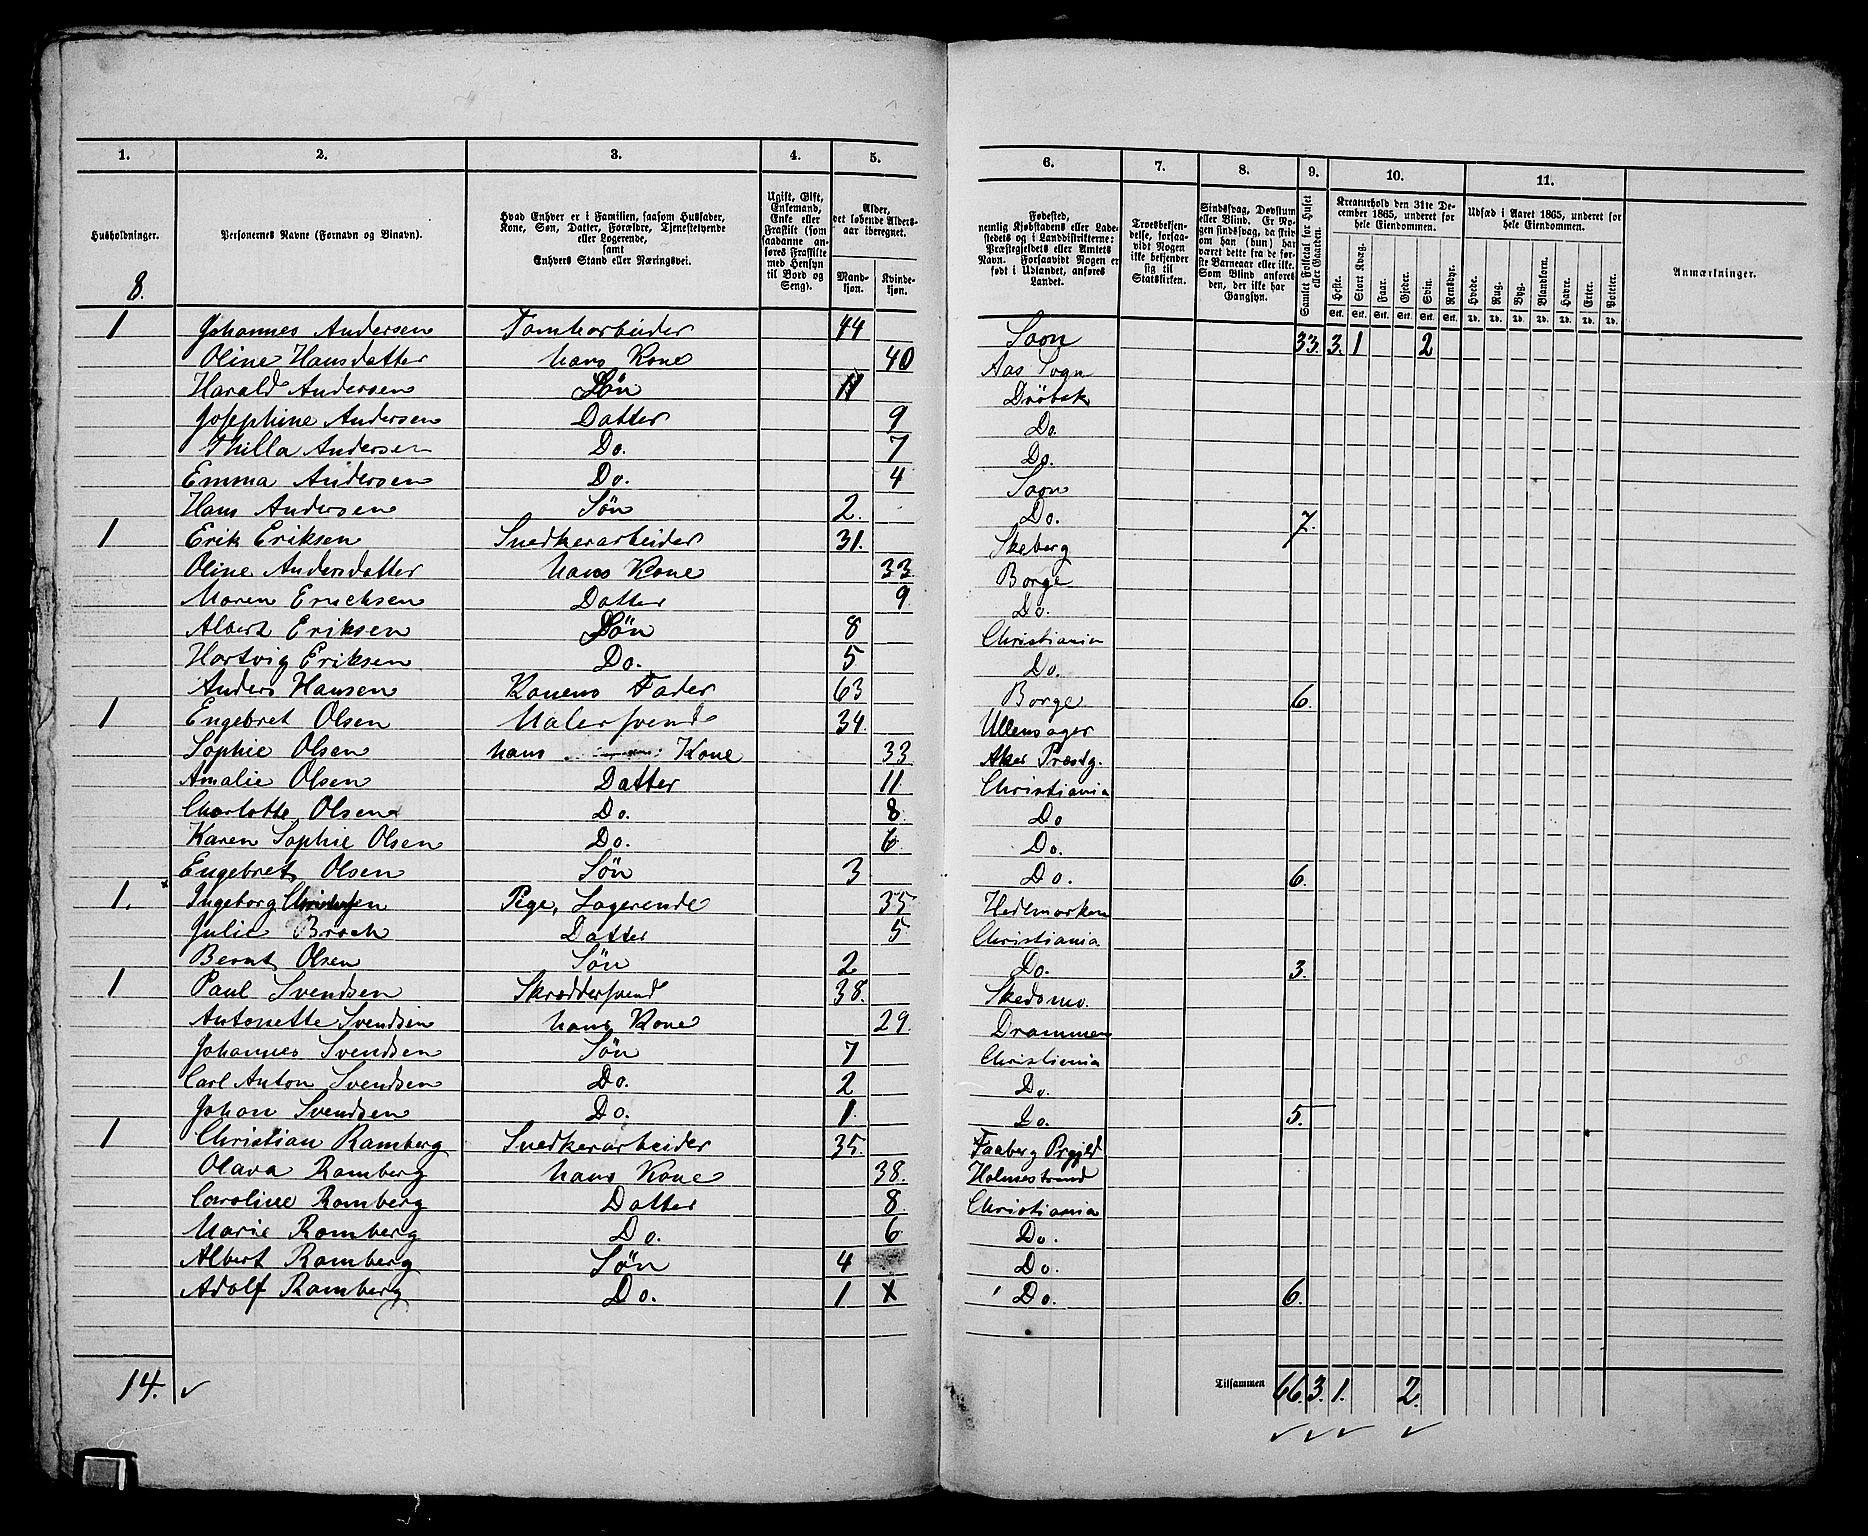 1. 2. 3. 4. 5. 6. 7. 8. 9. 10. 11.
Husholdninger.
Personernes Navne (Fornavn og Binavn).
Hvad Enhver er i Familien, saasom Husfader, Kone, Søn, Datter, Forældre, Tjenestetyende eller Logerende, samt Enhvers Stand eller Næringsvei.
Ugift, Gift, Enkemand, Enke eller Fraskilt (som saadanne anføres Fraskilte med Hensyn til Bord og Seng).
Alder, det løbende Alders-aar iberegnet.
Mand-kjøn. Kvinde-kjøn.
Fødested, nemlig Kjøbstadens eller Ladestedets og i Landdistrikterne: Præstegjeldets eller Amtets Navn. Forsaavidt Nogen er født i Udlandet, anføres Landet.
Troesbekjendelse, forsaavidt Nogen ikke bekjender sig til Statskirken.
Sindssvag, Døvstum eller Blind. Er Nogen sindssvag, da skrives om han (hun) har været dette fra de første Barneaar eller ikke. Som Blind anføres den, der ikke har Gangsyn.
Samlet Folketal for Huset eller Gaarden.
Kreaturhold den 31te December 1865, underet for hele Eiendommen.
Heste. Stort Kvæg. Faar. Gjeder. Svin. Rensdyr.
Stk. Stk. Stk. Stk. Stk. Stk.
Udsæd i Aaret 1865, underet for hele Eiendommen.
Hvede. Rug. Byg. Blandkorn. Havre. Erter. Poteter.
Td. Td. Td. Td. Td. Td. Td.
Anmærkninger.
8.
1 Johannes Andersen Tomtarbeider 44 Soon 33. 3. 1 2
Oline Hansdatter hans Kone 40 Aas Sogn
Harald Andersen Søn 11 Drøbak
Josephine Andersen Datter 9 Do.
Thilla Andersen Do. 7 Do.
Emma Andersen Do. 4 Soon
Hans Andersen Søn 2. Do. 7.
1 Erik Eriksen Snedkerarbeider 31. Skeberg
Oline Andersdatter hans Kone 33 Borge
Maren Ericksen Datter 9 Do.
Albert Eriksen Søn 8 Christiania
Hartvig Eriksen Do. 5 Do.
Anders Hansen Konens Fader 63 Borge 6.
1 Engebret Olsen Malersvend 34. Ullensager
Sophie Olsen hans Kone 33 Aker Præstg.
Amalie Olsen Datter 11. Christiania
Charlotte Olsen Do. 8. Do
Karen Sophie Olsen Do. 6 Do.
Engebret Olsen Søn 3 Do. 6.
1. Ingeborg Pige, Logerende 35 Hedemarken
Julie Datter 5 Christiania
Bernt Olsen Søn 2 Do. 3.
1 Paul Svendsen Skræddersvend 38. Skedsmo.
Antonette Svendsen hans Kone 29. Drammen
Johannes Svendsen Søn 7 Christiania
Carl Anton Svendsen Do. 2 Do.
Johan Svendsen Do. 1. Do. 5.
1 Christian Ramberg Snedkerarbeider 35. Faaberg Prgjld
Olava Ramberg hans Kone 38. Holmestrand
Caroline Ramberg Datter 8 Christiania
Marie Ramberg Do. 6 Do.
Albert Ramberg Søn 4 Do.
Adolf Ramberg Do. 1 x Do. 6.
14. ✓ Tilsammen 66. 3. 1. 2.
✓ ✓ ✓ ✓